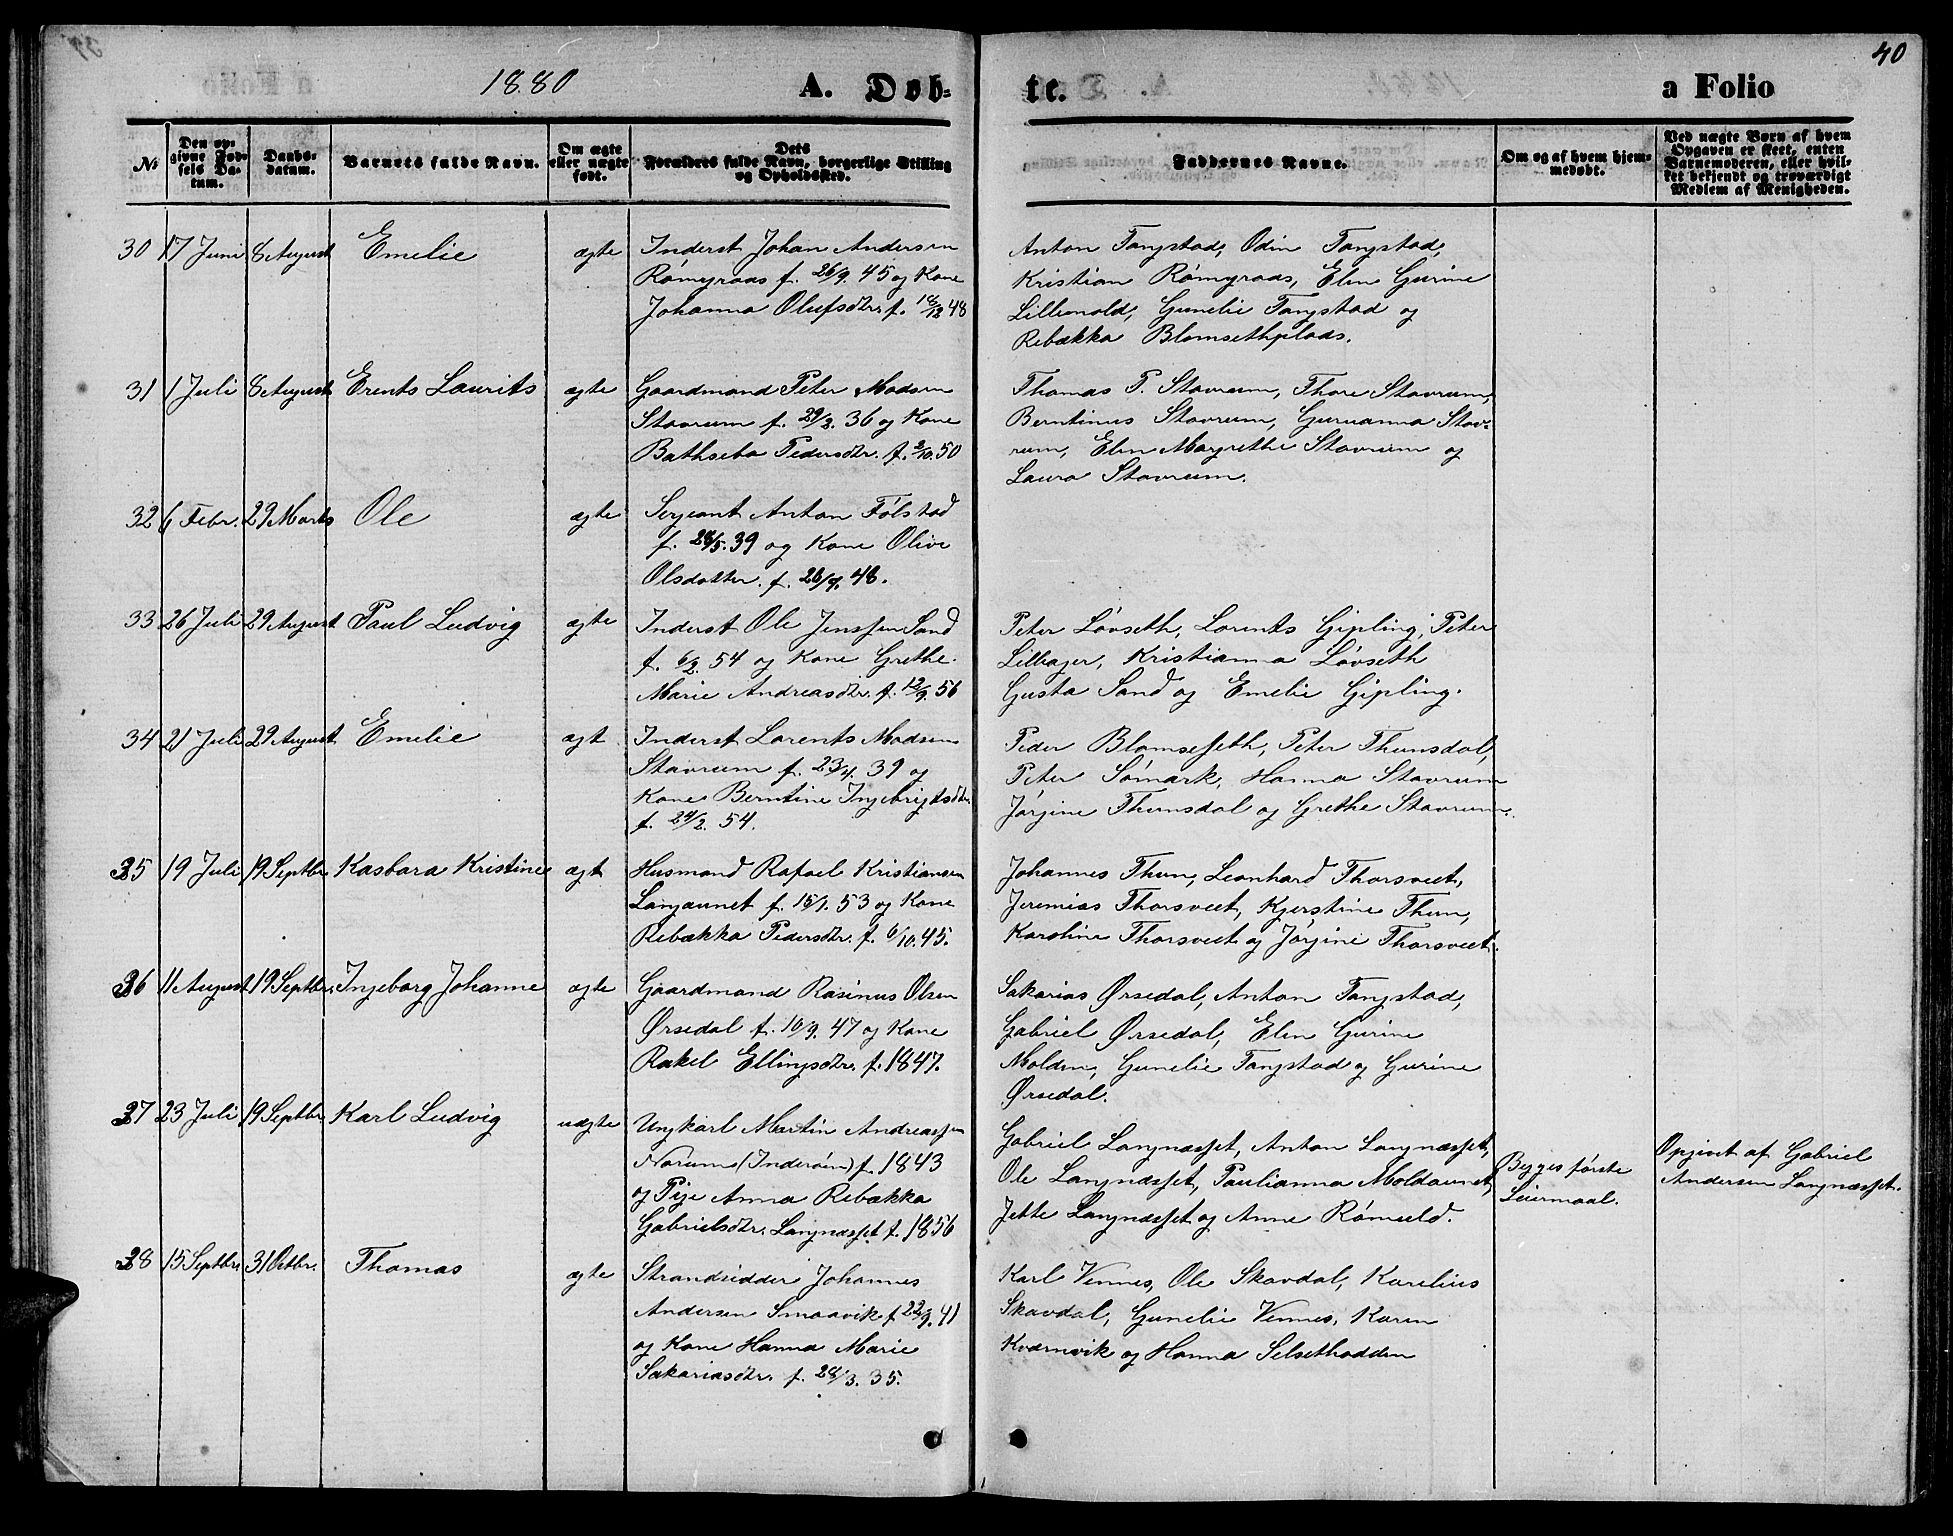 40
1880 A. Døb- te. a Folio
No
Den op-
givne Fød-
sels Da-
tum.
Daabs-
datum.
Barnets fulde Navn.
Om ægte
eller uægte
født.
Dets
Forældres fulde Navn, borgerlige Stilling
og Opholdssted.
Faddernes Navne.
Om og af hvem hjem-
medøbt.
Ved uægte Børn af hvem
Opgaven er skeet, enten
Barnemoderen, eller hvil-
ket bekjendt og troværdigt
Medlem af Menigheden.
30 17 Juni 8 August Emelie ægte
Inderst Johan Andersen
Rømyraas f. 26/9. 45 og Kone
Johanna Olufsdtr. f. 18/12 48
Anton Tangstad, Odin Tangstad,
Kristian Rømyraas, Elen Gurine
Lillemold, Gunelie Tangstad og
Rebækka Blomsethplads.
31 1 Juli 8 August Erents Laurits ægte
Gaardmand Peter Madsen
Stavrum f. 29/2. 36 og Kone
Bathseba Pedersdtr. f. 2/10. 50
Thomas P. Stavrum, Thore Stavrum,
Berntinus Stavrum, Guruanna Stav-
rum, Elen Margrethe Stavrum og
Laura Stavrum.
32 6 Febr. 29 Marts Ole ægte
Sergeant Anton Følstad
f. 28/5. 39 og Kone Olive
Olsdatter. f. 26/9. 48.
33 26 Juli 29 August Paul Ludvig ægte
Inderst Ole Jenssen Sand
f. 6/2. 54 og Kone Grethe
Marie Andreasdtr. f. 12/9. 56
Peter Løvseth, Lorents Gipling, Peter
Lilleager, Kristianna Løvseth
Gusta Sand og Emelie Gipling.
34 21 Juli 29 August Emelie ægt
Inderst Lorents Madsen
Stavrum f. 23/4. 39 og
Kone Berntine Ingebrigtsdtr.
f. 24/2. 54.
Peder Blomseseth, Peter Thunsdal,
Peter Sømark, Hanna Stavrum
Jørgine Thunsdal og Grethe Stavrum.
35 19 Juli 19 Septbr. Kasbara Kristine ægt
Husmand Rafael Kristiansen
Langaunet f. 15/1. 53 og Kone
Rebækka Pedersdtr. f. 6/10. 45.
Johannes Thun, Leonhard Thorsveet,
Jeremias Thorsveet, Kjerstine Thun,
Karoline Thorsveet og Jørgine Thorsveet.
36 11 August 19 Septbr. Ingeborg Johanne ægte
Gaardmand Rasinus Olsen
Ørsedal f. 16/9. 47 og Kone
Rakel Ellingsdtr. f. 1847.
Sakarias Ørsedal, Anton Tangstad,
Gabriel Ørsedal, Elen Gurine
Molden, Gunelie Tangstad og Gurine
Ørsedal.
37 23 Juli 19 Septbr. Karl Ludvig uægte
Ungkarl Martin Andreassen
Norum (Inderøen) f. 1843
og Pige Anna Rebækka
Gabrielsdtr. Langnæsset f. 1856
Gabriel Langnæsset, Anton Langnæsset,
Ole Langnæsset, Paulianna Moldaunet,
Jette Langnæsset og Anne Rømuld.
Begges første
Leiermaal.
Opgivet af Gabriel
Andersen Langnæsset.
38 15 Septbr. 31 Octbr. Thomas ægte
Strandsidder Johannes
Andersen Smaavik f 22/9. 41
og Kone Hanna Marie
Sakariasdtr. f. 28/3. 35.
Karl Vennes, Ole Skavdal, Karelius
Skavdal, Gunelie Vennes, Karen
Kværnvik og Hanna Selsethodden